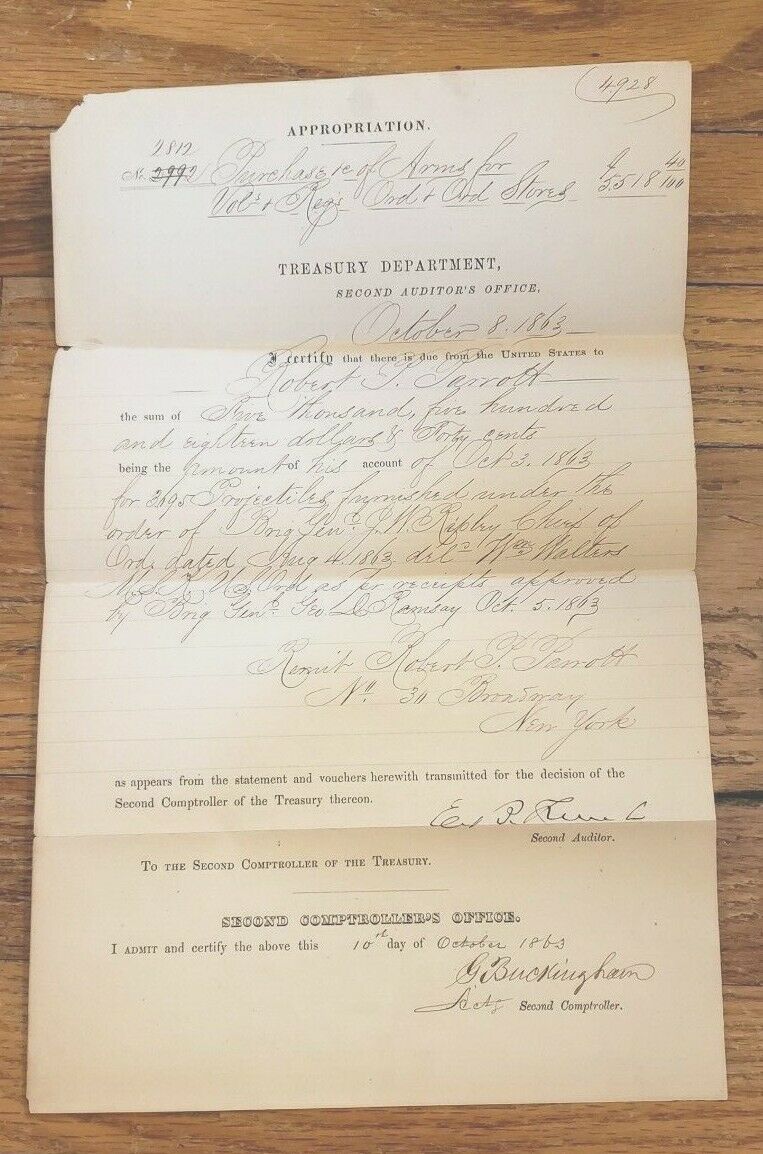 4928
APPROPRIATION.
2812
No. 2992 Purchase &c of Arms for $ 5.518 40/100
Vols & Regs Ord & Ord Stores
TREASURY DEPARTMENT,
SECOND AUDITOR'S OFFICE,
October 8. 1863
I certify that there is due from the UNITED STATES to
Robert P. Parrott
the sum of Five thousand, five hundred
and eighteen dollars & Forty cents
being the amount of his account of Oct 3. 1863
for Projectiles furnished under the
order of Brig Genl J. W. Ripley Chief of
Ord, dated Aug 4. 1863 Wm Walters
M.S.K. U.S. Ord as pr receipts approved
by Brig Genl Geo D Ramsay Oct. 5. 1863
Remit Robert P. Parrott
No. 30 Broadway
New York
as appears from the statement and vouchers herewith transmitted for the decision of the
Second Comptroller of the Treasury thereon.
Second Auditor.
TO THE SECOND COMPTROLLER OF THE TREASURY.
SECOND COMPTROLLER'S OFFICE.
I ADMIT and certify the above this 10th day of October 1863
G Buckingham
Actg Second Comptroller.